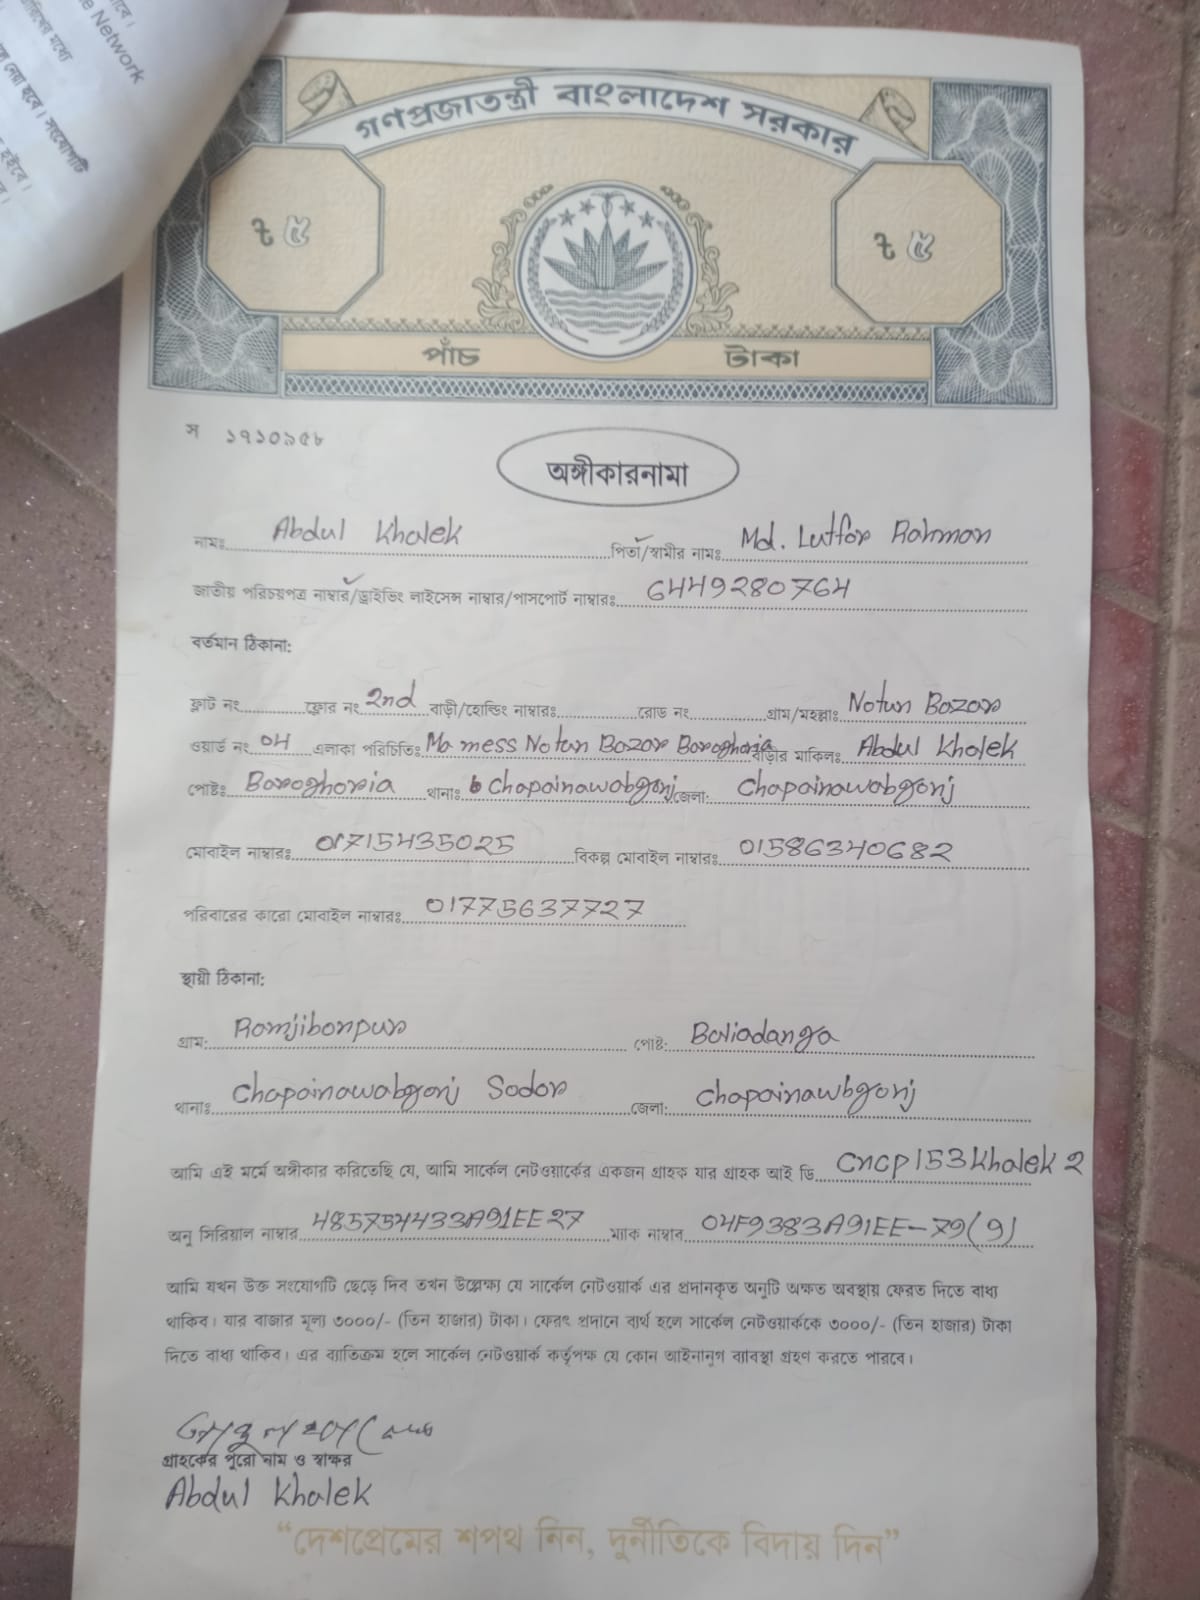 রিকের মধ্যে
e Network
নেয়া হবে। সংযোগটি
হইবে।
গণপ্রজাতন্ত্রী বাংলাদেশ সরকার
৳ ৫ ৳ ৫
পাঁচ টাকা
স ১৭১০৯৫৮
অঙ্গীকারনামা
নামঃ Abdul Khalek পিতা/স্বামীর নামঃ Md. Lutfor Rahman
জাতীয় পরিচয়পত্র নাম্বার/ড্রাইভিং লাইসেন্স নাম্বার/পাসপোর্ট নাম্বারঃ 6449280764
বর্তমান ঠিকানা:
ফ্লাট নং ফ্লোর নং 2nd বাড়ী/হোল্ডিং নাম্বারঃ রোড নং গ্রাম/মহল্লাঃ Notun Bazar
ওয়ার্ড নং 04 এলাকা পরিচিতিঃ Ma mess Notun Bazar Baroghoria বাড়ীর মাকিলঃ Abdul Khalek
পোষ্টঃ Baroghoria থানাঃ Chapainawabgonj জেলা: Chapainawabgonj
মোবাইল নাম্বারঃ 01715435025 বিকল্প মোবাইল নাম্বারঃ 01586340682
পরিবারের কারো মোবাইল নাম্বারঃ 01775637727
স্থায়ী ঠিকানা:
গ্রাম: Ramjibonpur পোষ্ট: Baliadanga
থানাঃ Chapainawabgonj Sador জেলা: Chapainawbgonj
আমি এই মর্মে অঙ্গীকার করিতেছি যে, আমি সার্কেল নেটওয়ার্কের একজন গ্রাহক যার গ্রাহক আই ডি CnCP153Khalek2
অনু সিরিয়াল নাম্বার 485754433A91EE27 ম্যাক নাম্বার 04F9383A91EE-79(9)
আমি যখন উক্ত সংযোগটি ছেড়ে দিব তখন উল্লেক্ষ্য যে সার্কেল নেটওয়ার্ক এর প্রদানকৃত অনুটি অক্ষত অবস্থায় ফেরত দিতে বাধ্য
থাকিব। যার বাজার মূল্য ৩০০০/- (তিন হাজার) টাকা। ফেরৎ প্রদানে ব্যর্থ হলে সার্কেল নেটওয়ার্ককে ৩০০০/- (তিন হাজার) টাকা
দিতে বাধ্য থাকিব। এর ব্যাতিক্রম হলে সার্কেল নেটওয়ার্ক কর্তৃপক্ষ যে কোন আইনানুগ ব্যাবস্থা গ্রহণ করতে পারবে।
গ্রাহকের পুরো নাম ও স্বাক্ষর
Abdul Khalek
“দেশপ্রেমের শপথ নিন, দুর্নীতিকে বিদায় দিন”